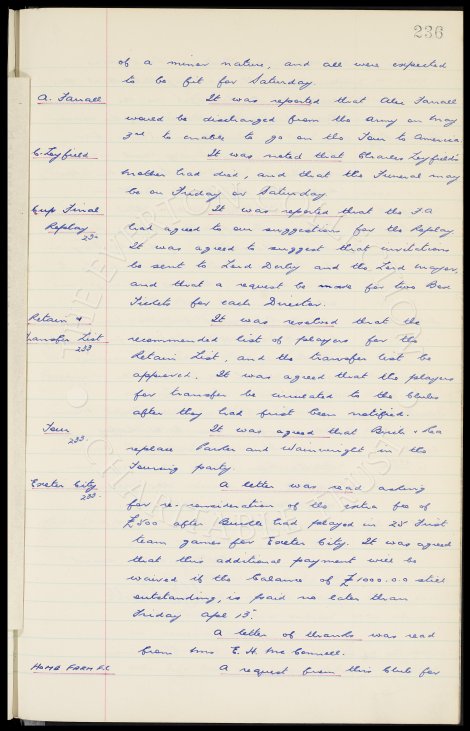 236
of a minor nature, and all were expected
to be fit for Saturday.
A. Farrall
It was reported that Alec Farrall
would be discharged from the Army on May
3rd to enable to go on the Tour to America
C. Leyfield
It was noted that Charles Leyfield's
mother had died, and that the Funeral may
be on Friday or Saturday
Cup Final
It was reported that the F.A
Replay
had agreed to our suggestions for the Replay
It was agreed to suggest that invitations
be sent to Lord Derby and the Lord Mayor,
and that a request be made for two Box
Tickets for each Director.
Retain &
It was resolved that the
Transfer List
recommended list of players for the
233
Retain List, and the transfer list be
approved. It was agreed that the players
for transfer be circulated to the Clubs
after they had first been notified.
Tour
It was agreed that Birch & Rea
233
replace Parker and Wainwright in the
Touring party.
Exeter City
A letter was read asking
233
for re-consideration of the extra fee of
£500 after Buckle had played in 25 First
team games for Exeter City. It was agreed
that this additional payment will be
waived if the balance of £1000.0.0 still
outstanding, is paid no later than
Friday Apl 13th
A letter of thanks was read
from Mrs E. H. McConnell.
HOME FARM F.C.
A request from this Club for